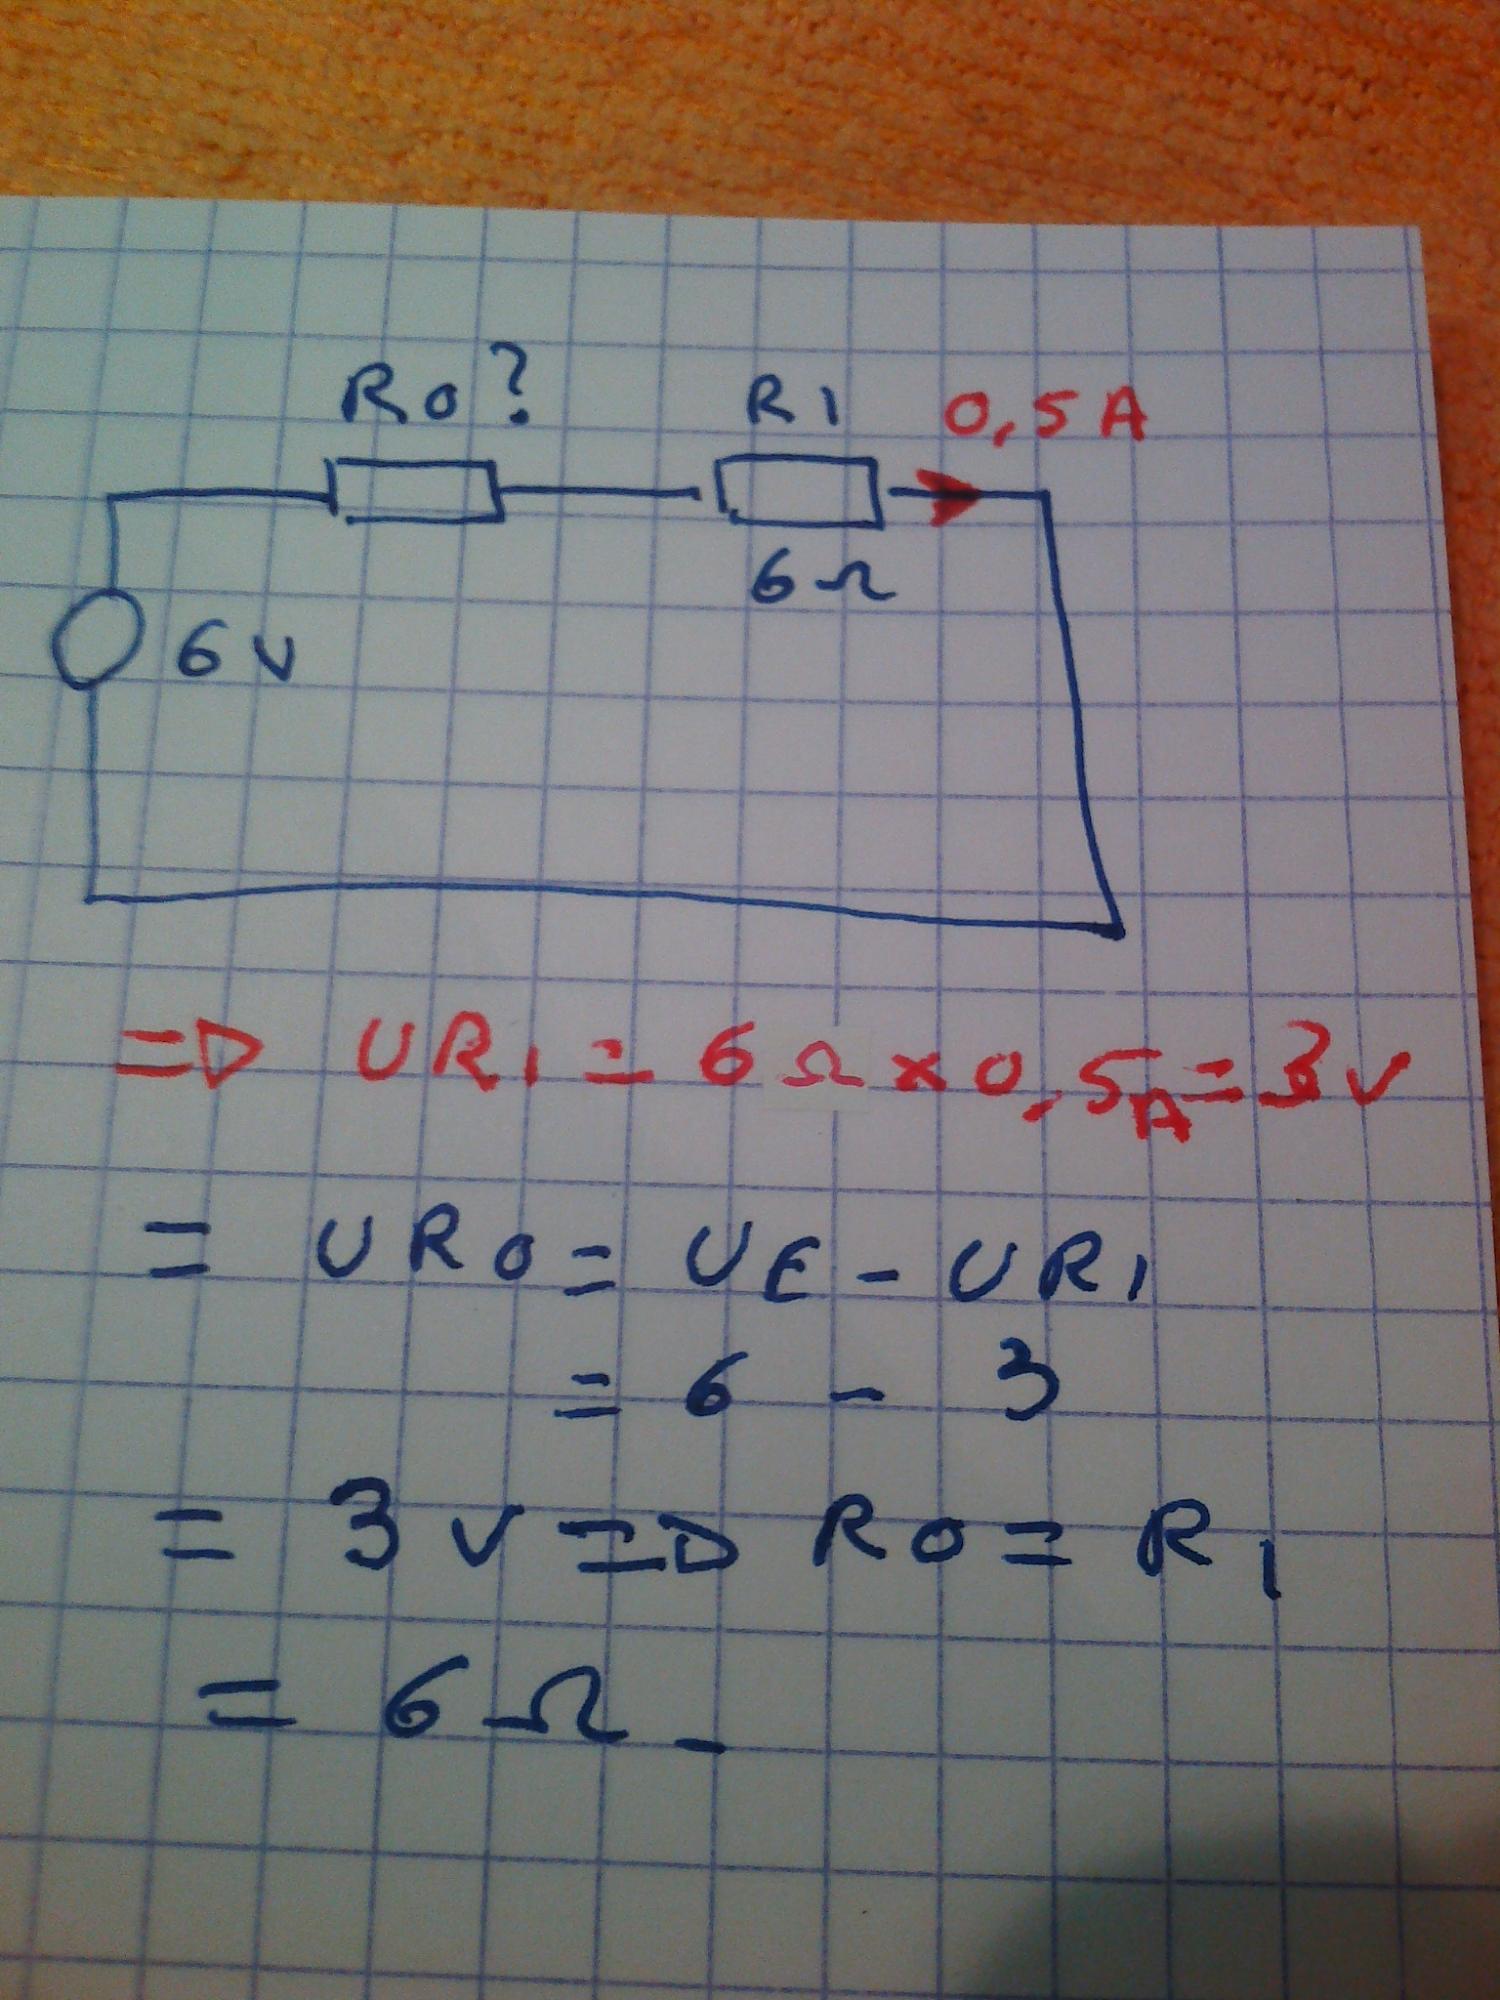 R0? R1 0,5A
6Ω
6V
=D UR1 = 6Ω x 0,5A = 3V
= UR0 = UE - UR1
= 6 - 3
= 3V =D R0 = R1
= 6Ω -